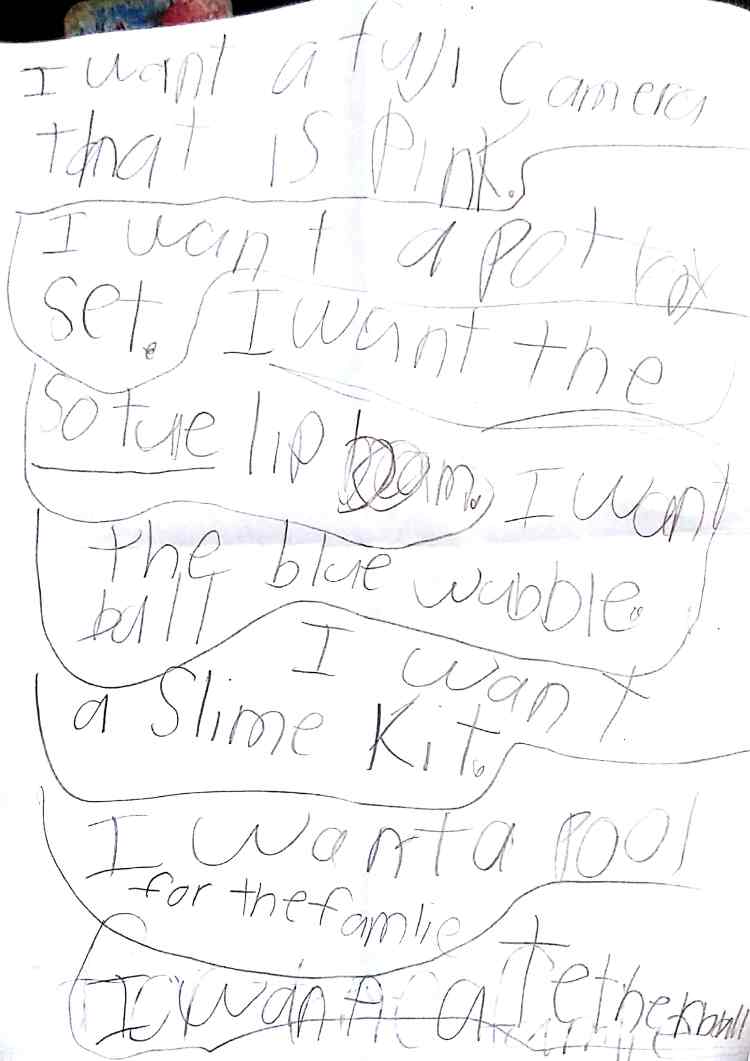 I want a fuji Camera
that is Pink.
I want a pot box
set. I want the
so tue lip beam. I want
the blue wubble.
ball I want
a Slime Kit.
I want a pool
for the famlie
I want a Tetherball